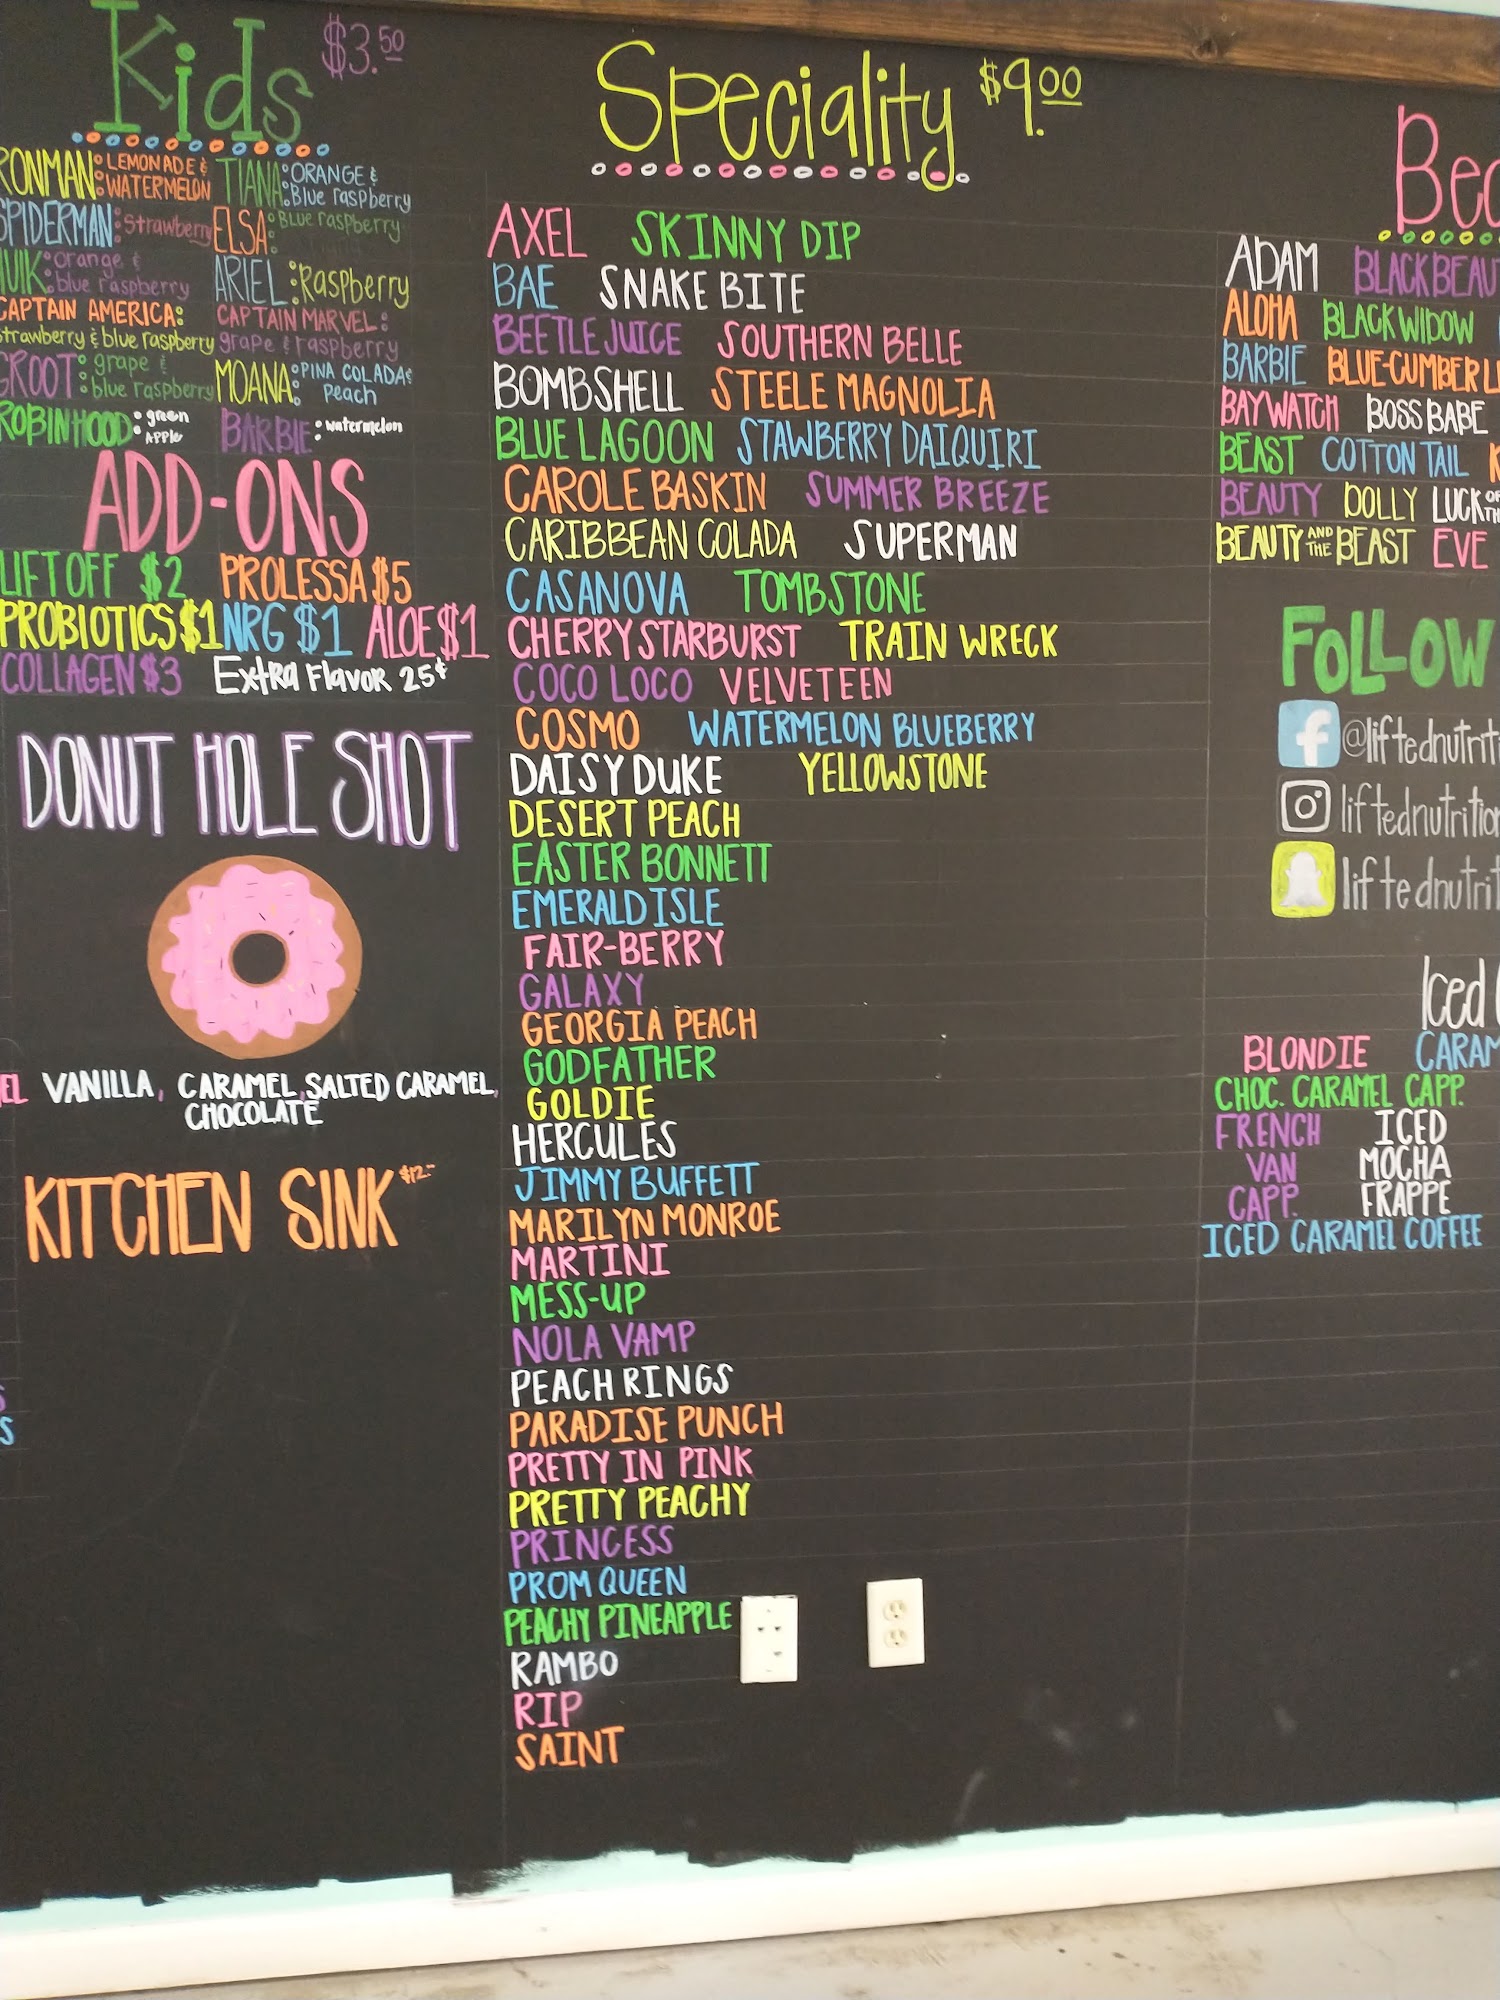 Kids $3.50
RONMAN: LEMONADE & WATERMELON
TIANA: ORANGE & Blue raspberry
SPIDERMAN: Strawberry
ELSA: BLUE raspberry
orange & blue raspberry
ARIEL: Raspberry
CAPTAIN AMERICA: strawberry & blue raspberry
CAPTAIN MARVEL: grape & raspberry
GROOT: grape & blue raspberry
MOANA: PINA COLADA & Peach
ROBINHOOD: green APPLE
BARBIE: watermelon
ADD-ONS
LIFTOFF $2 PROLESSA $5
PROBIOTICS $1 NRG $1 ALOE $1
COLLAGEN $3 Extra Flavor 25¢
DONUT HOLE SHOT
EL VANILLA, CARAMEL, SALTED CARAMEL,
CHOCOLATE
KITCHEN SINK $12.
S
S
Speciality $9.00
AXEL SKINNY DIP
BAE SNAKE BITE
BEETLEJUICE SOUTHERN BELLE
BOMBSHELL STEELE MAGNOLIA
BLUE LAGOON STAWBERRY DAIQUIRI
CAROLE BASKIN SUMMER BREEZE
CARIBBEAN COLADA SUPERMAN
CASANOVA TOMBSTONE
CHERRY STARBURST TRAIN WRECK
COCO LOCO VELVETEEN
COSMO WATERMELON BLUEBERRY
DAISY DUKE YELLOWSTONE
DESERT PEACH
EASTER BONNETT
EMERALD ISLE
FAIR-BERRY
GALAXY
GEORGIA PEACH
GODFATHER
GOLDIE
HERCULES
JIMMY BUFFETT
MARILYN MONROE
MARTINI
MESS-UP
NOLA VAMP
PEACH RINGS
PARADISE PUNCH
PRETTY IN PINK
PRETTY PEACHY
PRINCESS
PROM QUEEN
PEACHY PINEAPPLE
RAMBO
RIP
SAINT
Bea
ADAM BLACKBEAUT
ALOHA BLACKWIDOW
BARBIE BLUE-CUMBER L
BAYWATCH BOSS BABE
BEAST COTTON TAIL K
BEAUTY DOLLY LUCK OF TH
BEAUTY AND THE BEAST EVE
FOLLOW
f @liftednutriti
liftednutrition
liftednutrit
Iced
BLONDIE CARAM
CHOC. CARAMEL CAPP.
FRENCH ICED
VAN MOCHA
CAPP. FRAPPE
ICED CARAMEL COFFEE